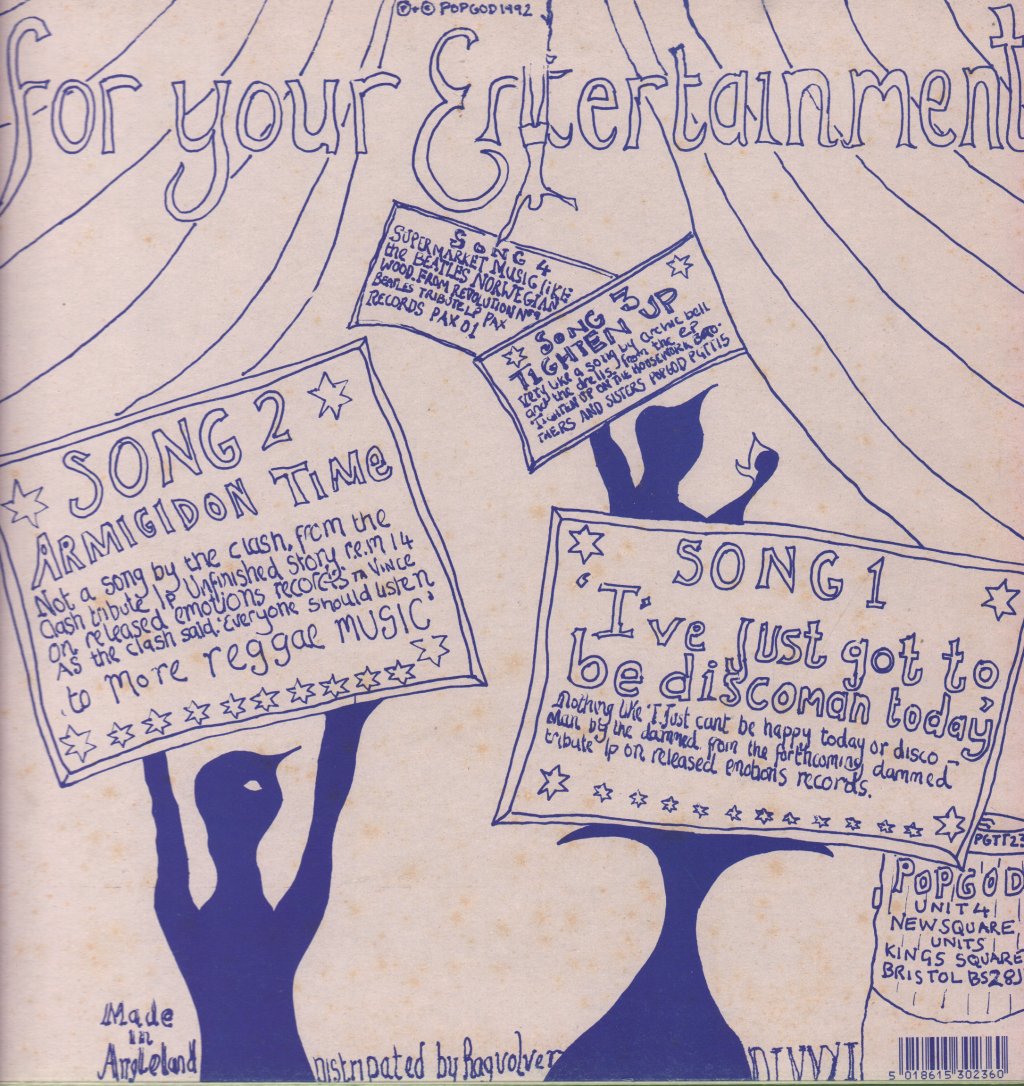 ℗+© POPGOD 1992
for your Entertainment
SONG 4
SUPERMARKET MUSIC LIKE
the BEATLES NORWEGIAN
WOOD. FROM REVOLUTION No 9
BEATLES TRIBUTE LP PAX
RECORDS PAX 01
SONG 3
TIGHTEN UP
very like a song by archie bell
and the drells, from the e.p
TIGHTEN UP ON THE HOUSEWORK BRO-
THERS AND SISTERS POPGOD PGTT15
SONG 2
ARMIGIDON TIME
Not a song by the clash, from the
clash tribute LP Unfinished Story re.m 14
on released emotions records TA VINCE
As the clash said. 'Everyone should listen
to more reggae MUSIC'
SONG 1
'I've just got to
be discoman today'
nothing like 'I just cant be happy today or disco_
man by the damned from the forthcoming dammed
tribute lp on released emotions records.
PGTT23
POPGOD
UNIT 4
NEWSQUARE
UNITS
KINGS SQUARE
BRISTOL BS28J
Made
in
Angleland
Distripated by Raquolver
5 018615 302360